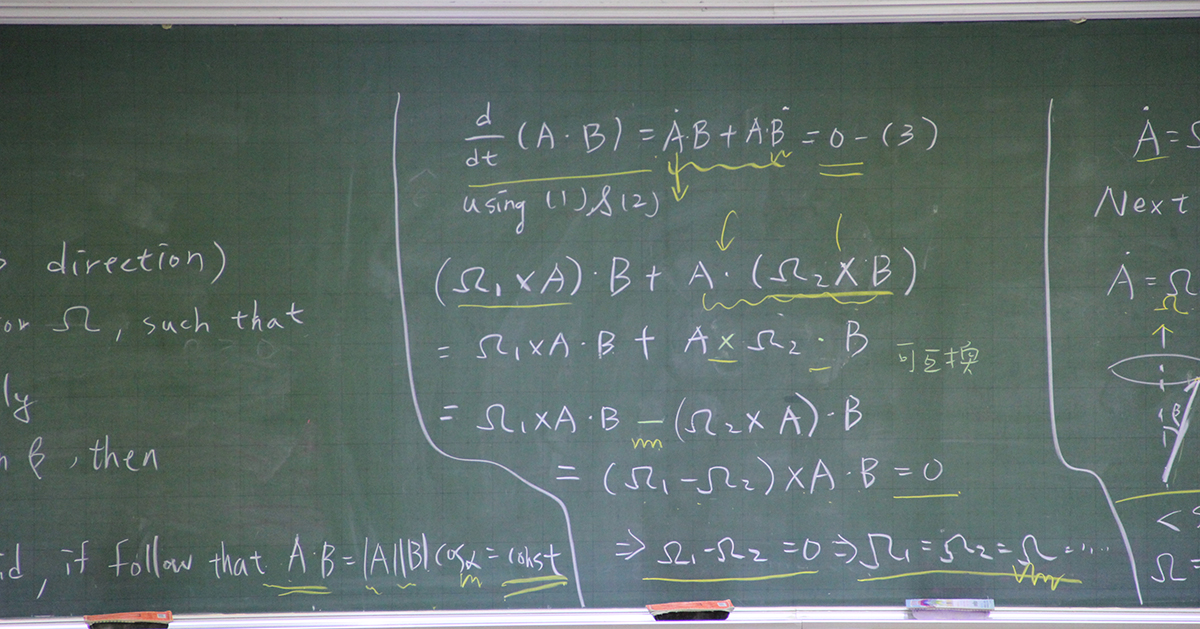 direction)
Ω, such that
ly
β, then
, if follow that A·B = |A||B| cosα = const
d/dt (A·B) = Ȧ·B + A·Ḃ = 0 — (3)
using (1) & (2)
(Ω₁×A)·B + A·(Ω₂×B)
= Ω₁×A·B + A×Ω₂·B 可互換
= Ω₁×A·B − (Ω₂×A)·B
= (Ω₁−Ω₂)×A·B = 0
⇒ Ω₁−Ω₂ = 0 ⇒ Ω₁ = Ω₂ = Ω .....
Ȧ =
Next
Ȧ = Ω
Ω
β
Ω =